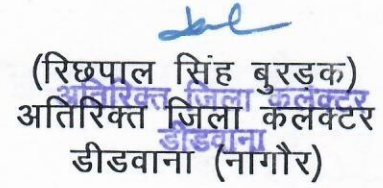 (रिछपाल सिंह बुरड़क)
अतिरिक्त जिला कलेक्टर
अतिरिक्त जिला कलेक्टर
डीडवाना
डीडवाना (नागौर)